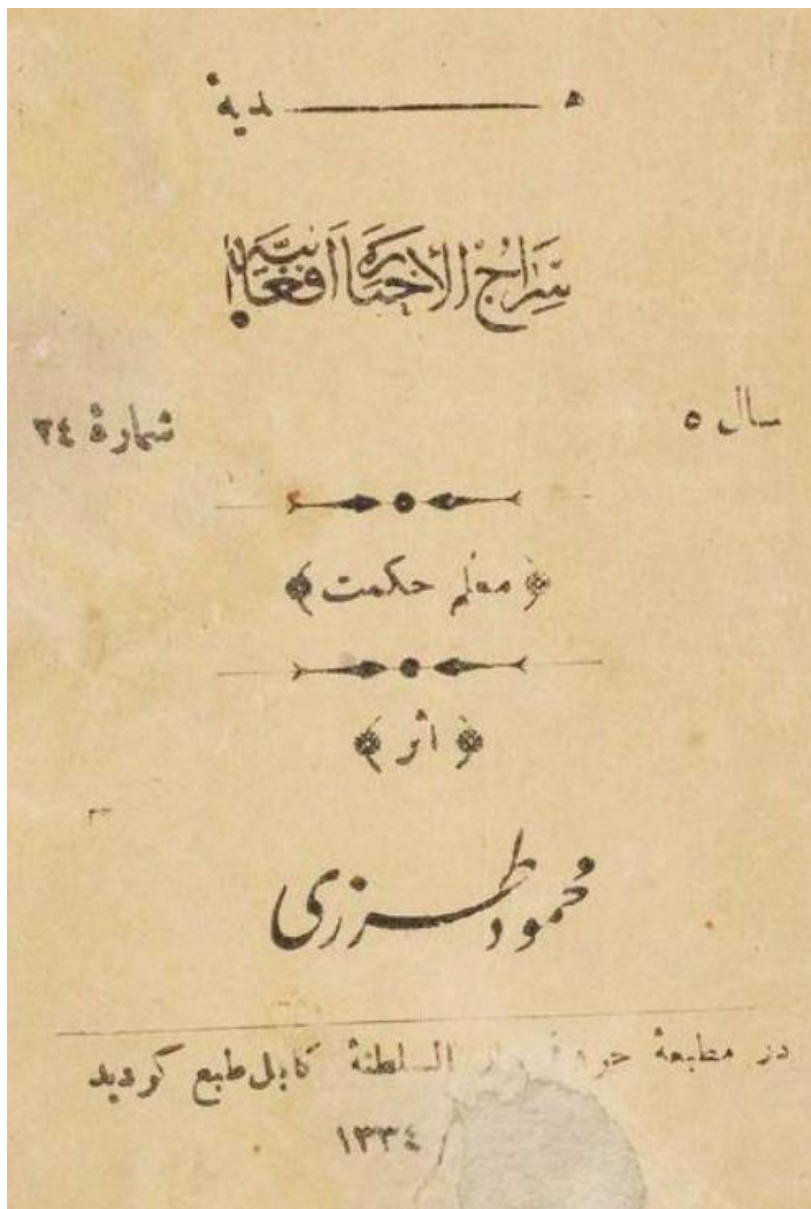 هدیهٔ
سراج الأخبار افغانیه
سال ٥
شمارهٔ ٢٤
﴿معلم حکمت﴾
﴿اثر﴾
محمود طرزی
در مطبعهٔ السلطنهٔ کابل طبع کردید
١٣٣٤